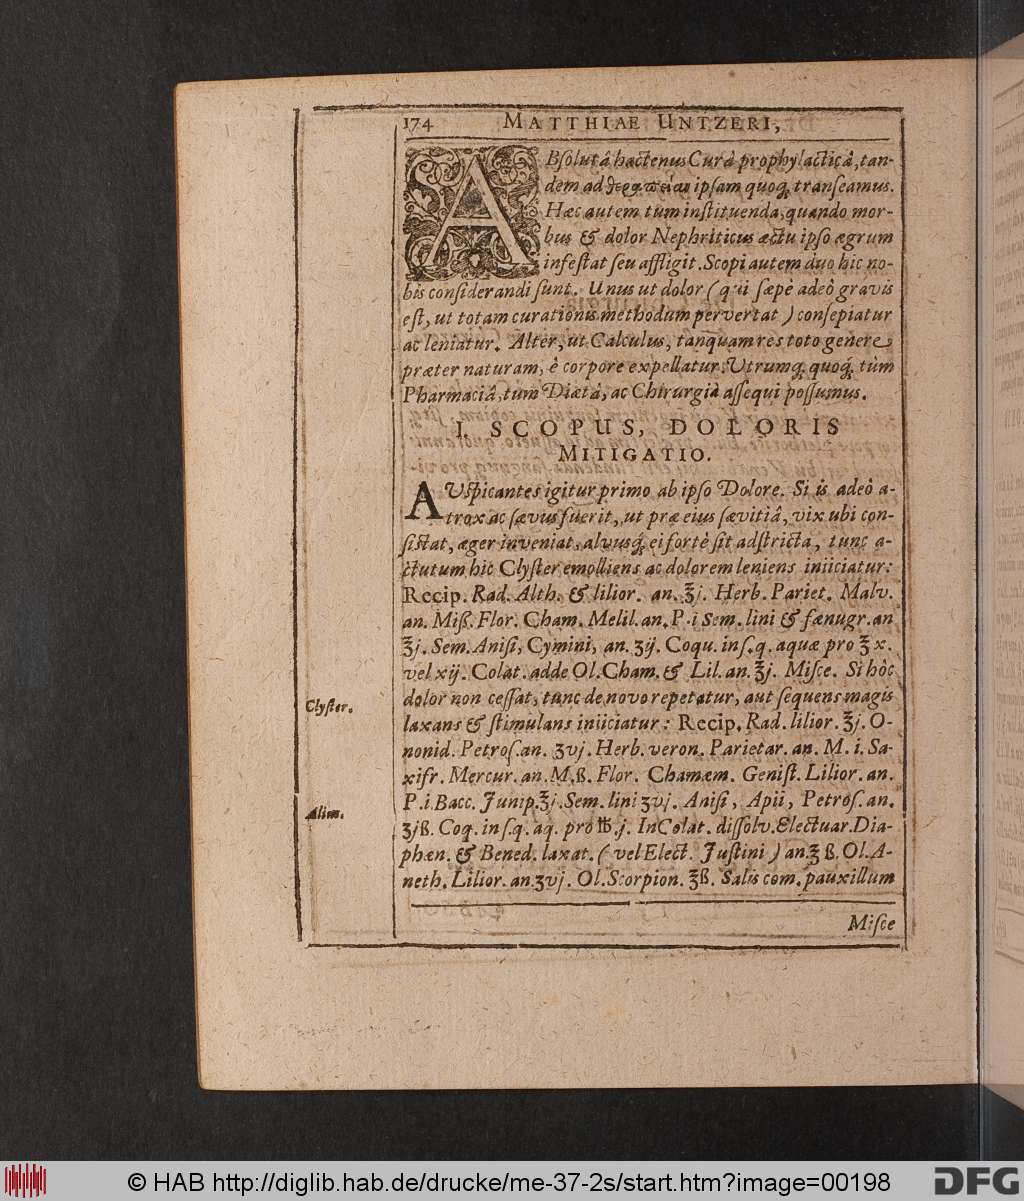 174 MATTHIAE UNTZERI,
ABſolutâ hactenus Curâ prophylacticâ, tan-
dem ad θεραπείαν ipſam quoq; tranſeamus.
Hæc autem tùm inſtituenda, quando mor-
bus & dolor Nephriticus actu ipſo ægrum
infeſtat ſeu affligit. Scopi autem duo hic no-
bis conſiderandi ſunt. Unus ut dolor (qui ſæpè adeò gravis
eſt, ut totam curationis methodum pervertat) conſepiatur
ac leniatur. Alter, ut Calculus, tanquam res toto genere
præter naturam, è corpore expellatur: Utrumq; quoq; tùm
Pharmaciâ, tum Diætâ, ac Chirurgiâ aſſequi poſſumus.
I. SCOPUS, DOLORIS
MITIGATIO.
AUſpicantes igitur primo ab ipſo Dolore. Si is adeò a-
trox ac ſævus fuerit, ut præ eius ſævitiâ, vix ubi con-
ſiſtat, æger inveniat, alvusq; ei fortè ſit adſtricta, tunc a-
ctutum hic Clyſter emolliens ac dolorem leniens iniiciatur:
Recip. Rad. Alth. & lilior. an. ℥j. Herb. Pariet. Malv.
an. Miß. Flor. Cham. Melil. an. P. i Sem. lini & fænugr. an
℥j. Sem. Aniſi, Cymini, an. ʒij. Coqu. in ſ. q. aquæ pro ℥ x.
vel xij. Colat. adde Ol. Cham. & Lil. an. ℥j. Miſce. Si hòc
dolor non ceſſat, tunc de novo repetatur, aut ſequens magis
Clyſter.
laxans & ſtimulans iniiciatur: Recip. Rad. lilior. ℥j. O-
nonid. Petroſ. an. ʒvj. Herb. veron. Parietar. an. M. i. Sa-
xifr. Mercur. an. M. ß. Flor. Chamæm. Geniſt. Lilior. an.
P. i. Bacc. Junip. ℥j. Sem. lini ʒvj. Aniſi, Apii, Petroſ. an.
Alim.
ʒjß. Coq. in ſ. q. aq. pro ℔. j. In Colat. diſſolv. Electuar. Dia-
phæn. & Bened. laxat. (vel Elect. Juſtini) an. ℥ ß. Ol. A-
neth. Lilior. an. ʒvj. Ol. Scorpion. ℥ß. Salis com. pauxillum
Miſce
© HAB http://diglib.hab.de/drucke/me-37-2s/start.htm?image=00198
DFG